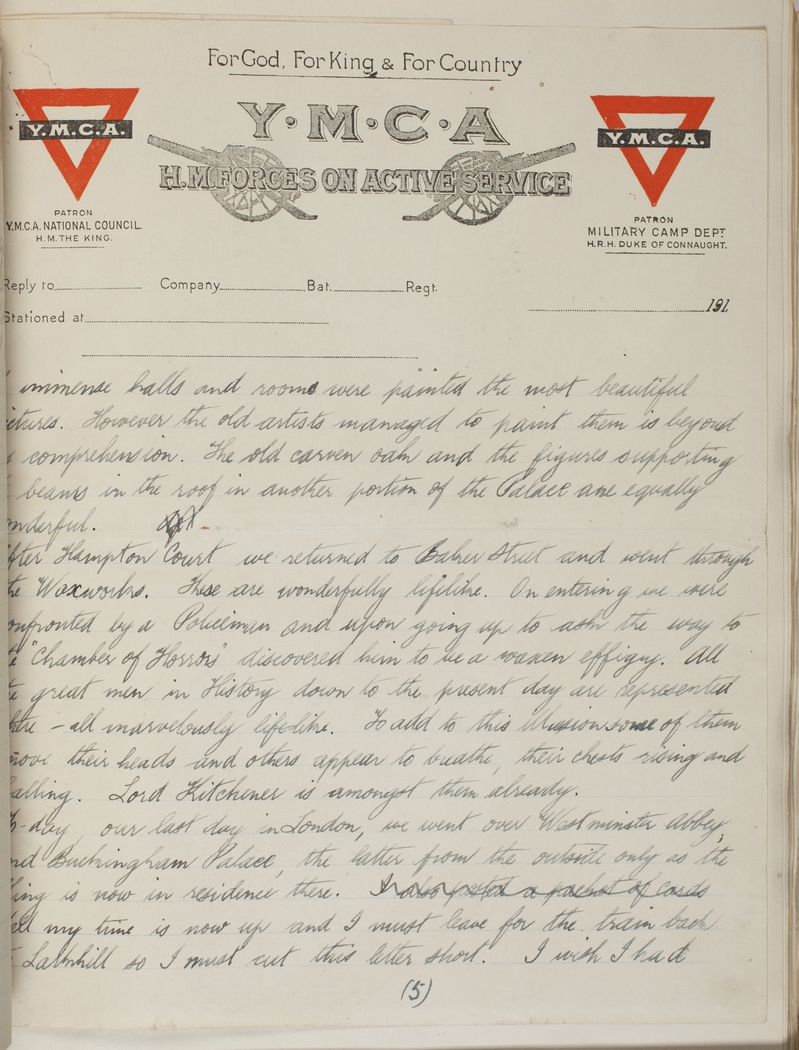 For God, For King & For Country
Y.M.C.A.
Y·M·C·A
H.M. FORCES ON ACTIVE SERVICE
Y.M.C.A.
PATRON
Y.M.C.A. NATIONAL COUNCIL.
H.M. THE KING.
PATRON
MILITARY CAMP DEPT
H.R.H. DUKE OF CONNAUGHT.
Reply to Company Bat. Regt.
Stationed at
191
immense halls and rooms were painted the most beautiful
ctures. However the old artists managed to paint them is beyond
comprehension. The old carven oak and the figures supporting
beams in the roof in another portion of the Palace are equally
onderful.
fter Hampton Court we returned to Baker Street and went through
he Waxworks. These are wonderfully lifelike. On entering we were
onfronted by a Policeman and upon going up to ask the way to
"Chamber of Horrors" discovered him to be a waxen effigy. All
great men in History down to the present day are represented
here - all marvelously lifelike. To add to this illusion some of them
move their heads and others appear to breathe, their chests rising and
falling. Lord Kitchener is amongst them already.
To-day, our last day in London, we went over Westminster Abbey,
nd Buckingham Palace, the latter from the outside only as the
King is now in residence there. I also posted a packet of cards
ell my time is now up and I must leave for the train back
Larkhill so I must cut this letter short. I wish I had
(5)